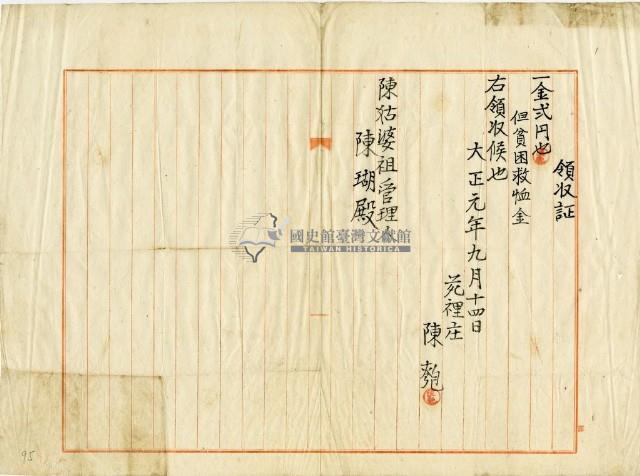 領収証
一金弐円也
但貧困救恤金
右領収候也
大正元年九月十四日
苑裡庄
陳
陳祜婆祖管理人
陳瑚殿
國史館臺灣文獻館
TAIWAN HISTORICA
95